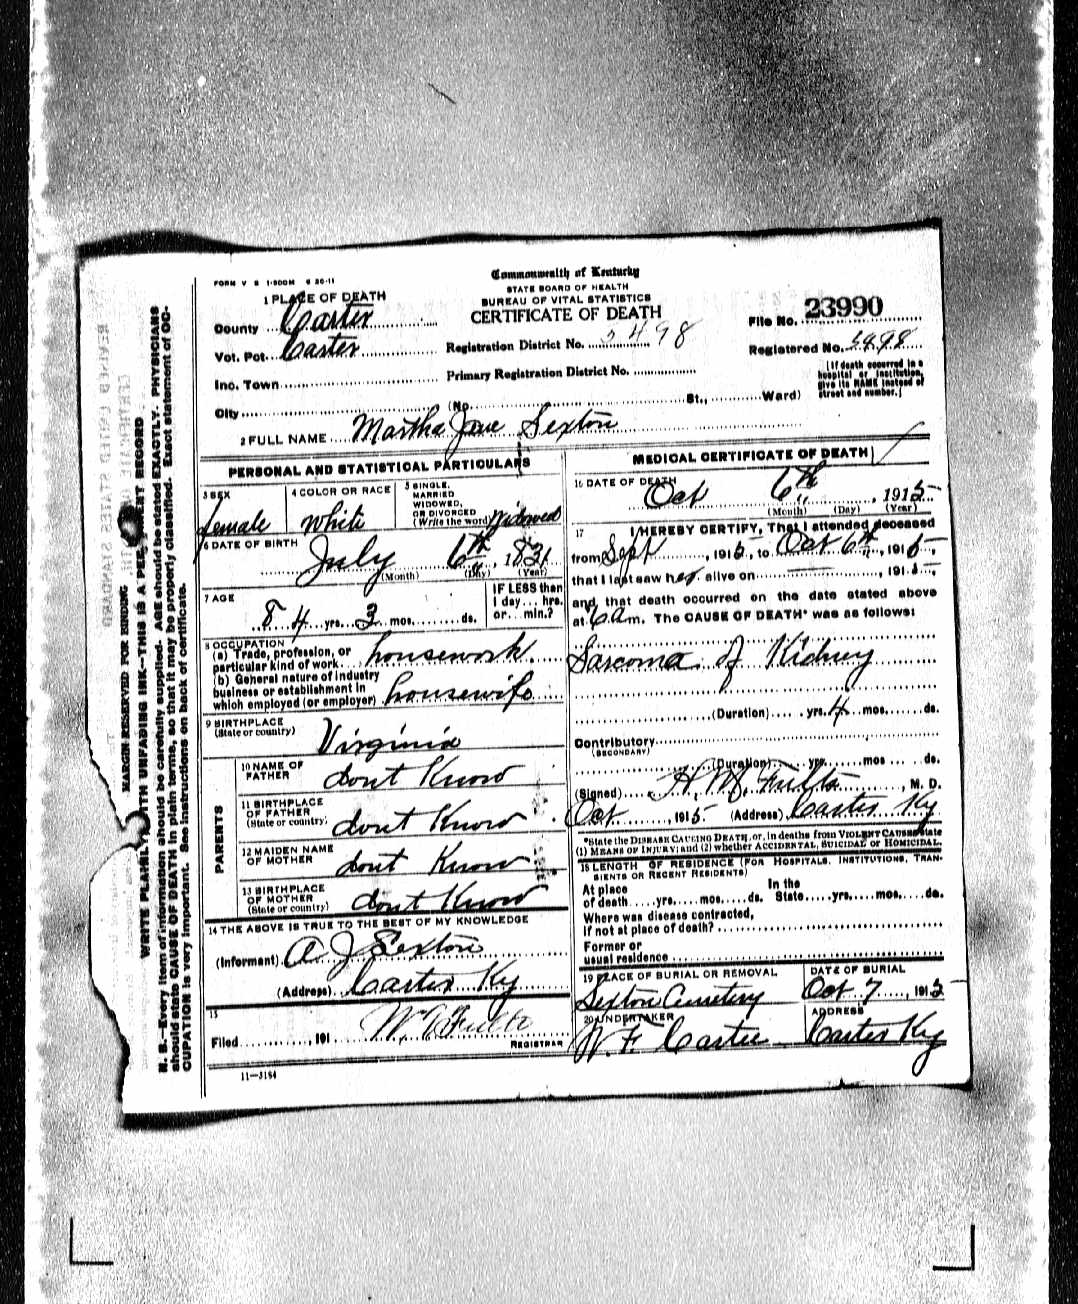 FORM V S 1-500M 6 20-11
Commonwealth of Kentucky
STATE BOARD OF HEALTH
BUREAU OF VITAL STATISTICS
CERTIFICATE OF DEATH
1 PLACE OF DEATH
County Carter
Vot. Pct. Carter
Inc. Town
City
Registration District No. 5498
Primary Registration District No.
(No. St., Ward)
File No. 23990
Registered No. 5498
[If death occurred in a
hospital or institution,
give its NAME instead of
street and number.]
2 FULL NAME Martha Jane Sexton
PERSONAL AND STATISTICAL PARTICULARS
3 SEX
female
4 COLOR OR RACE
White
5 SINGLE,
MARRIED
WIDOWED,
OR DIVORCED
(Write the word) Widowed
6 DATE OF BIRTH
July 6th, 1831
(Month) (Day) (Year)
7 AGE
84 yrs. 3 mos. ds.
IF LESS than
1 day... hrs.
or... min.?
8 OCCUPATION
(a) Trade, profession, or
particular kind of work housework
(b) General nature of industry
business or establishment in
which employed (or employer) housewife
9 BIRTHPLACE
(State or country) Virginia
PARENTS
10 NAME OF
FATHER dont Know
11 BIRTHPLACE
OF FATHER
(State or country) dont Know
12 MAIDEN NAME
OF MOTHER dont Know
13 BIRTHPLACE
OF MOTHER
(State or country) dont Know
14 THE ABOVE IS TRUE TO THE BEST OF MY KNOWLEDGE
(Informant) A J Sexton
(Address) Carter Ky
15
Filed , 191
REGISTRAR
11-3184
MEDICAL CERTIFICATE OF DEATH
16 DATE OF DEATH
Oct 6th, 1915
(Month) (Day) (Year)
17 I HEREBY CERTIFY, That I attended deceased
from Sept, 1915, to Oct 6th, 1915,
that I last saw her alive on , 1915,
and that death occurred on the date stated above
at 6 a m. The CAUSE OF DEATH* was as follows:
Sarcoma of Kidney
(Duration) yrs. 4 mos. ds.
Contributory
(SECONDARY)
(Duration) yrs. mos. ds.
(Signed) H. M. Fultz, M. D.
Oct, 1915 (Address) Carter Ky
*State the DISEASE CAUSING DEATH, or, in deaths from VIOLENT CAUSES state
(1) MEANS OF INJURY; and (2) whether ACCIDENTAL, SUICIDAL or HOMICIDAL.
18 LENGTH OF RESIDENCE (FOR HOSPITALS, INSTITUTIONS, TRAN-
SIENTS OR RECENT RESIDENTS)
At place In the
of death yrs. mos. ds. State yrs. mos. ds.
Where was disease contracted,
if not at place of death?
Former or
usual residence
19 PLACE OF BURIAL OR REMOVAL
Sexton Cemetery
DATE OF BURIAL
Oct 7, 1915
20 UNDERTAKER
W. F. Cartee
ADDRESS
Carter Ky
MARGIN RESERVED FOR BINDING
WRITE PLAINLY, WITH UNFADING INK—THIS IS A PERMANENT RECORD
N. B.—Every item of information should be carefully supplied. AGE should be stated EXACTLY. PHYSICIANS
should state CAUSE OF DEATH in plain terms, so that it may be properly classified. Exact statement of OC-
CUPATION is very important. See instructions on back of certificate.